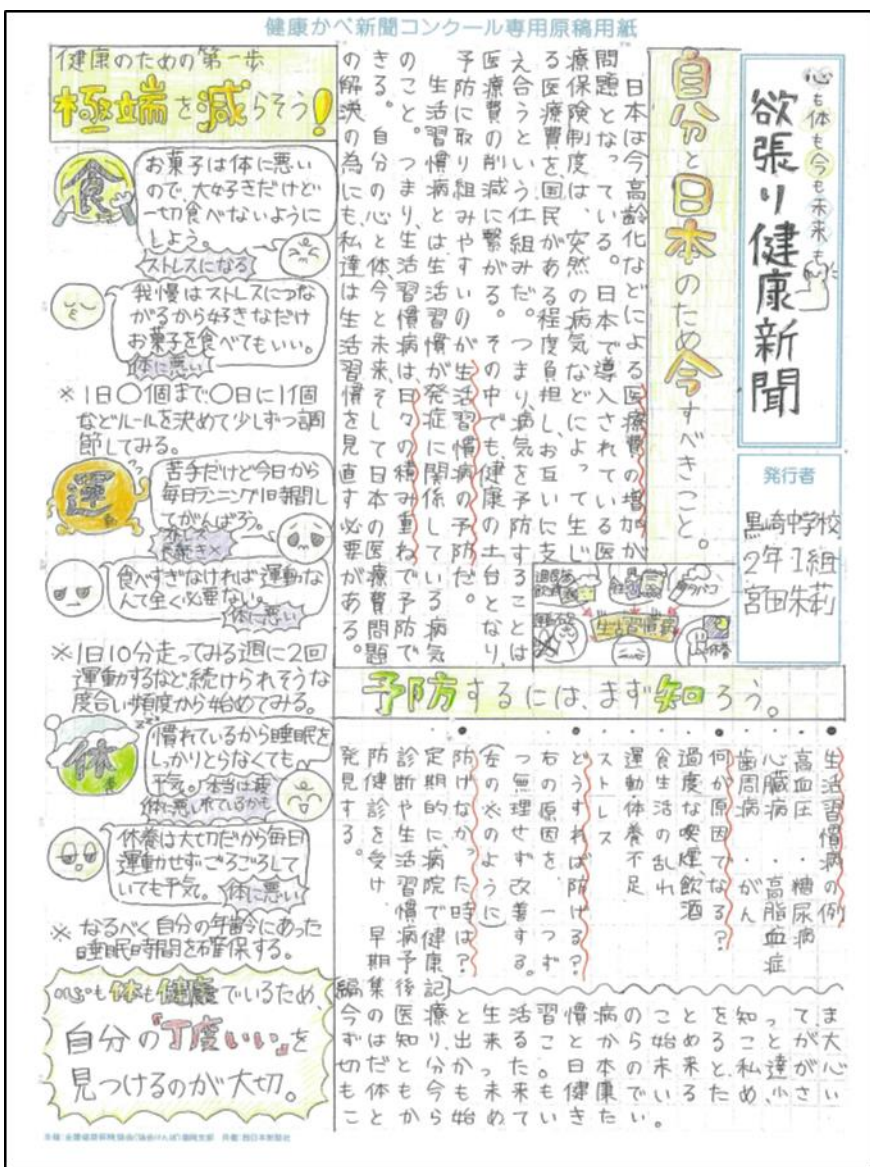 健康かべ新聞コンクール専用原稿用紙
心も体も今も未来も
欲張り健康新聞
発行者
黒崎中学校
2年1組
宮田朱莉
自分と日本のため今すべきこと。
日本は今高齢化などによる医療費の増加が
問題となっている。日本で導入されている医
療保険制度は、突然の病気などによって生じ
る医療費を国民がある程度負担し、お互いに支
え合うという仕組みだ。つまり、病気を予防することは、
医療費の削減に繋がる。その中でも、健康の土台となり、
予防に取り組みやすいのが生活習慣病の予防だ。
生活習慣病とは生活習慣が発症に関係している病気
のこと。つまり、生活習慣病は、日々の積み重ねで予防で
きる。自分の心と体、今と未来、そして日本の医療費問題
の解決の為にも、私達は生活習慣を見直す必要がある。
生活習慣病
予防するには、まず知ろう。
・生活習慣病の例
高血圧・糖尿病
心臓病・高脂血症
歯周病・がん
・何が原因でなる?
過度な喫煙、飲酒
食生活の乱れ
運動、休養不足
ストレス
・どうすれば防げる?
右の原因を、一つず
つ無理せず改善する。
(左の※のように)
・防げなかった時は?
定期的に病院で健康
診断や生活習慣病予
防健診を受け、早期
発見する。
編集後記
今の医療と生活習慣病のことを知ってま
ずは知り、出来ることから始めることが大
切だと分かった。日本の未来と私達が心
も体も今も未来も健康でいるため、小さい
ことから始めていきたい。
健康のための第一歩
極端を減らそう!
食
お菓子は体に悪い
ので、大好きだけど
一切食べないように
しよう。
ストレスになる
我慢はストレスにつな
がるから好きなだけ
お菓子を食べてもいい。
体に悪い
※1日〇個まで〇日に1個
などルールを決めて少しずつ調
節してみる。
運
苦手だけど今日から
毎日ランニング1時間し
てがんばろ。
ストレス
長続き×
食べすぎなければ運動な
んて全く必要ない。
体に悪い
※1日10分走ってみる週に2回
運動するなど続けられそうな
度合い頻度から始めてみる。
休
慣れているから睡眠を
しっかりとらなくても
平気。
本当は疲れているかも
体に悪い
休養は大切だから毎日
運動せずごろごろして
いても平気。
体に悪い
※なるべく自分の年齢にあった
睡眠時間を確保する。
心も体も健康でいるため、
自分の『丁度いい』を
見つけるのが大切。
主催:全国健康保険協会(協会けんぽ)福岡支部 共催:西日本新聞社